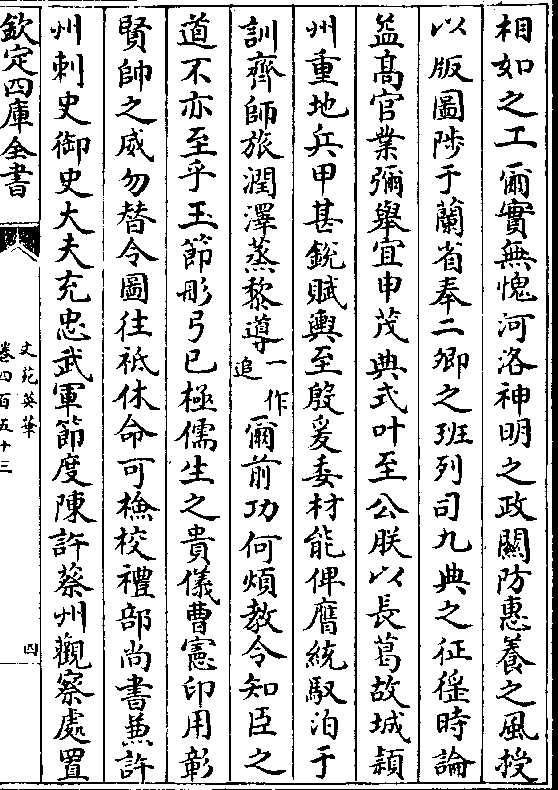 相如之工爾實無愧河洛神明之政關防惠養之風授
以版圖陟于蘭省奉二卿之班列司九典之征徭時論
益高官業彌舉宜申茂典式叶至公朕以長葛故城潁
州重地兵甲甚銳賦輿至殷爰委材能俾膺統馭洎于
訓齊師旅潤澤蒸黎導一作追爾前功何煩教令知臣之
道不亦至乎玉節彤弓已極儒生之貴儀曹憲印用彰
賢帥之威勿替令圖往祗休命可檢校禮部尚書兼許
州刺史御史大夫充忠武軍節度陳許蔡州觀察處置
欽定四庫全書
文苑英華
卷四百五十三
四